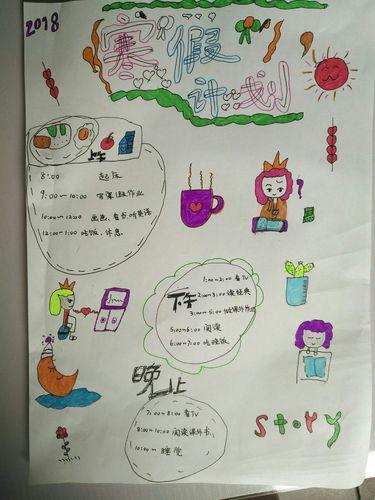 2018
寒假
计划
上午
8:00 起床
9:00~10:00 写寒假作业
10:00~12:00 画画、看书、听英语
12:00~1:00 吃饭、休息
下午
1:00~2:00 看TV
2:00~3:00 读经典
3:00~5:00 做课外作业
5:00~6:00 阅读
6:00~7:00 吃晚饭
晚上
7:00~8:00 看TV
8:00~10:00 阅读课外书
10:00~ 睡觉
story